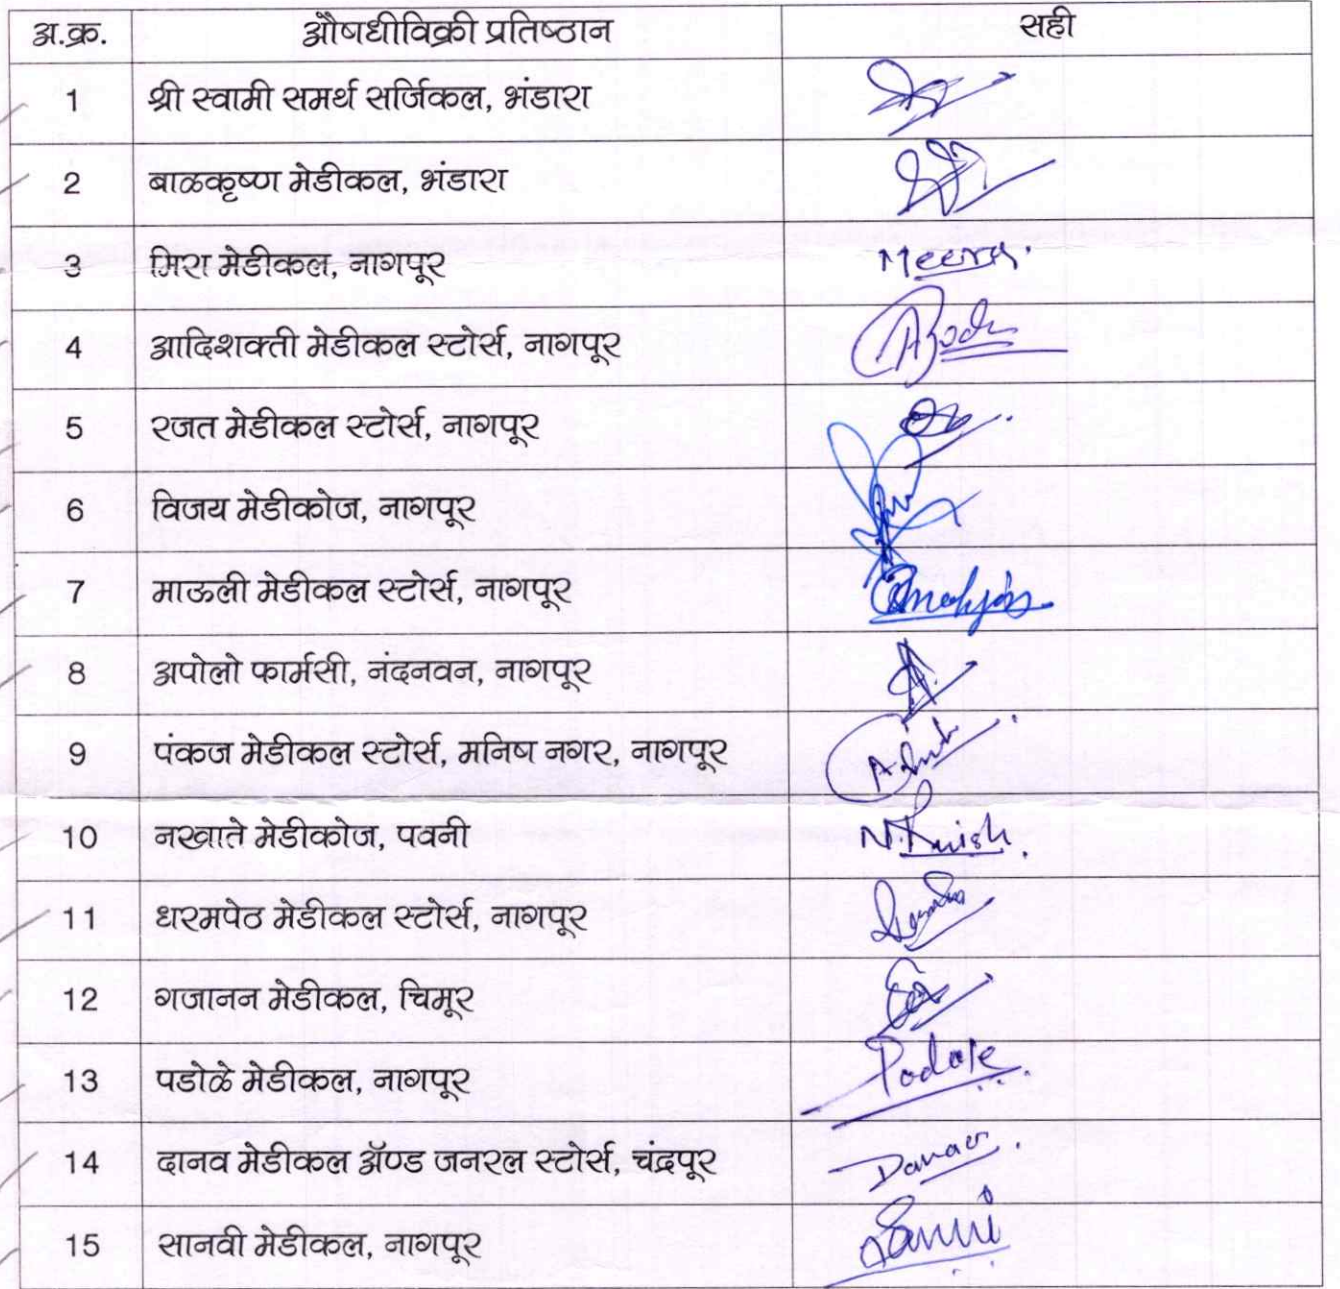 अ.क्र. औषधीविक्री प्रतिष्ठान सही
1 श्री स्वामी समर्थ सर्जिकल, भंडारा
2 बाळकृष्ण मेडीकल, भंडारा
3 मिरा मेडीकल, नागपूर Meera.
4 आदिशक्ती मेडीकल स्टोर्स, नागपूर
5 रजत मेडीकल स्टोर्स, नागपूर
6 विजय मेडीकोज, नागपूर
7 माऊली मेडीकल स्टोर्स, नागपूर
8 अपोलो फार्मसी, नंदनवन, नागपूर
9 पंकज मेडीकल स्टोर्स, मनिष नगर, नागपूर
10 नखाते मेडीकोज, पवनी
11 धरमपेठ मेडीकल स्टोर्स, नागपूर
12 गजानन मेडीकल, चिमूर
13 पडोळे मेडीकल, नागपूर Padole
14 दानव मेडीकल ॲण्ड जनरल स्टोर्स, चंद्रपूर
15 सानवी मेडीकल, नागपूर